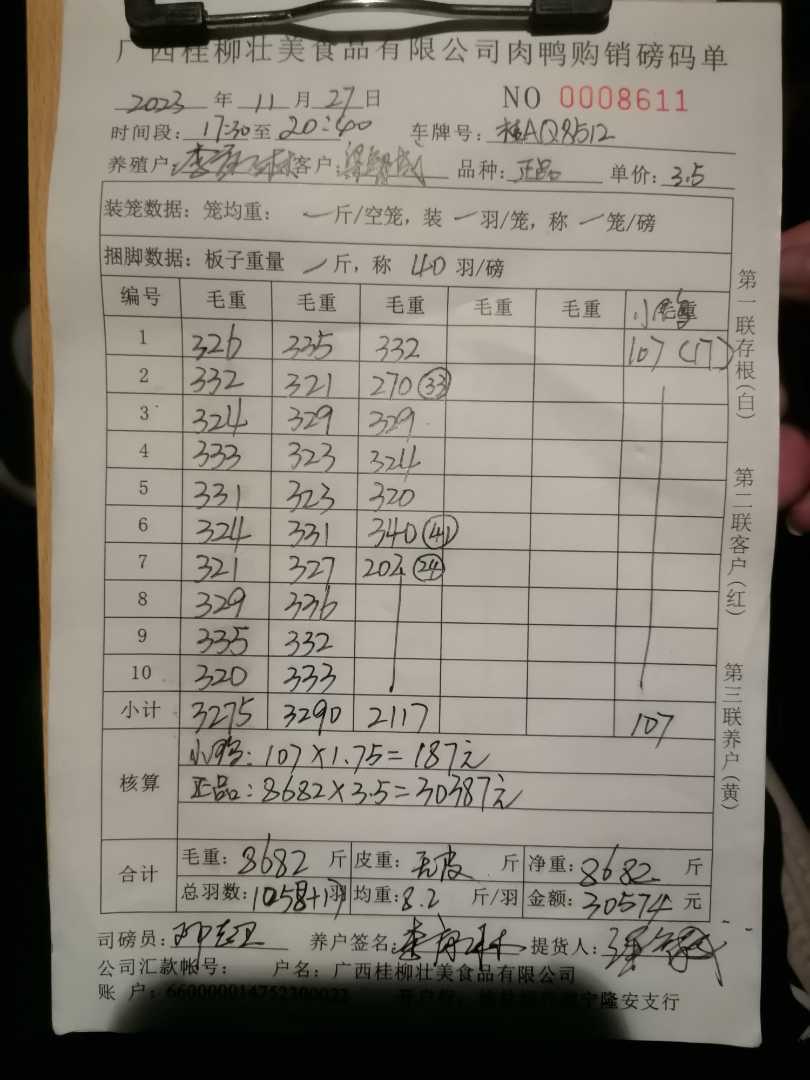 广西桂柳壮美食品有限公司肉鸭购销磅码单
2023 年 11 月 27 日 NO 0008611
时间段: 17:30 至 20:40 车牌号: 桂AQ8512
养殖户: 李 林 客户: 梁 成 品种: 正品 单价: 3.5
装笼数据: 笼均重: 一 斤/空笼, 装 一 羽/笼, 称 一 笼/磅
捆脚数据: 板子重量 一 斤, 称 40 羽/磅
编号 毛重 毛重 毛重 毛重 毛重 小鸭
1 326 335 332 107 (17)
2 332 321 270 (33)
3 324 329 329
4 333 323 324
5 331 323 320
6 324 331 340 (41)
7 321 327 202 (24)
8 329 336
9 335 332
10 320 333
小计 3275 3290 2117 107
核算 小鸭: 107×1.75=187元
正品: 8682×3.5=30387元
合计 毛重: 8682 斤 皮重: 无皮 斤 净重: 8682 斤
总羽数: 1058+17 羽 均重: 8.2 斤/羽 金额: 30574 元
司磅员: 养户签名: 李 林 提货人:
公司汇款帐号: 户名: 广西桂柳壮美食品有限公司
账 户: 660000014752300022 宁隆安支行
第一联存根(白)
第二联客户(红)
第三联养户(黄)